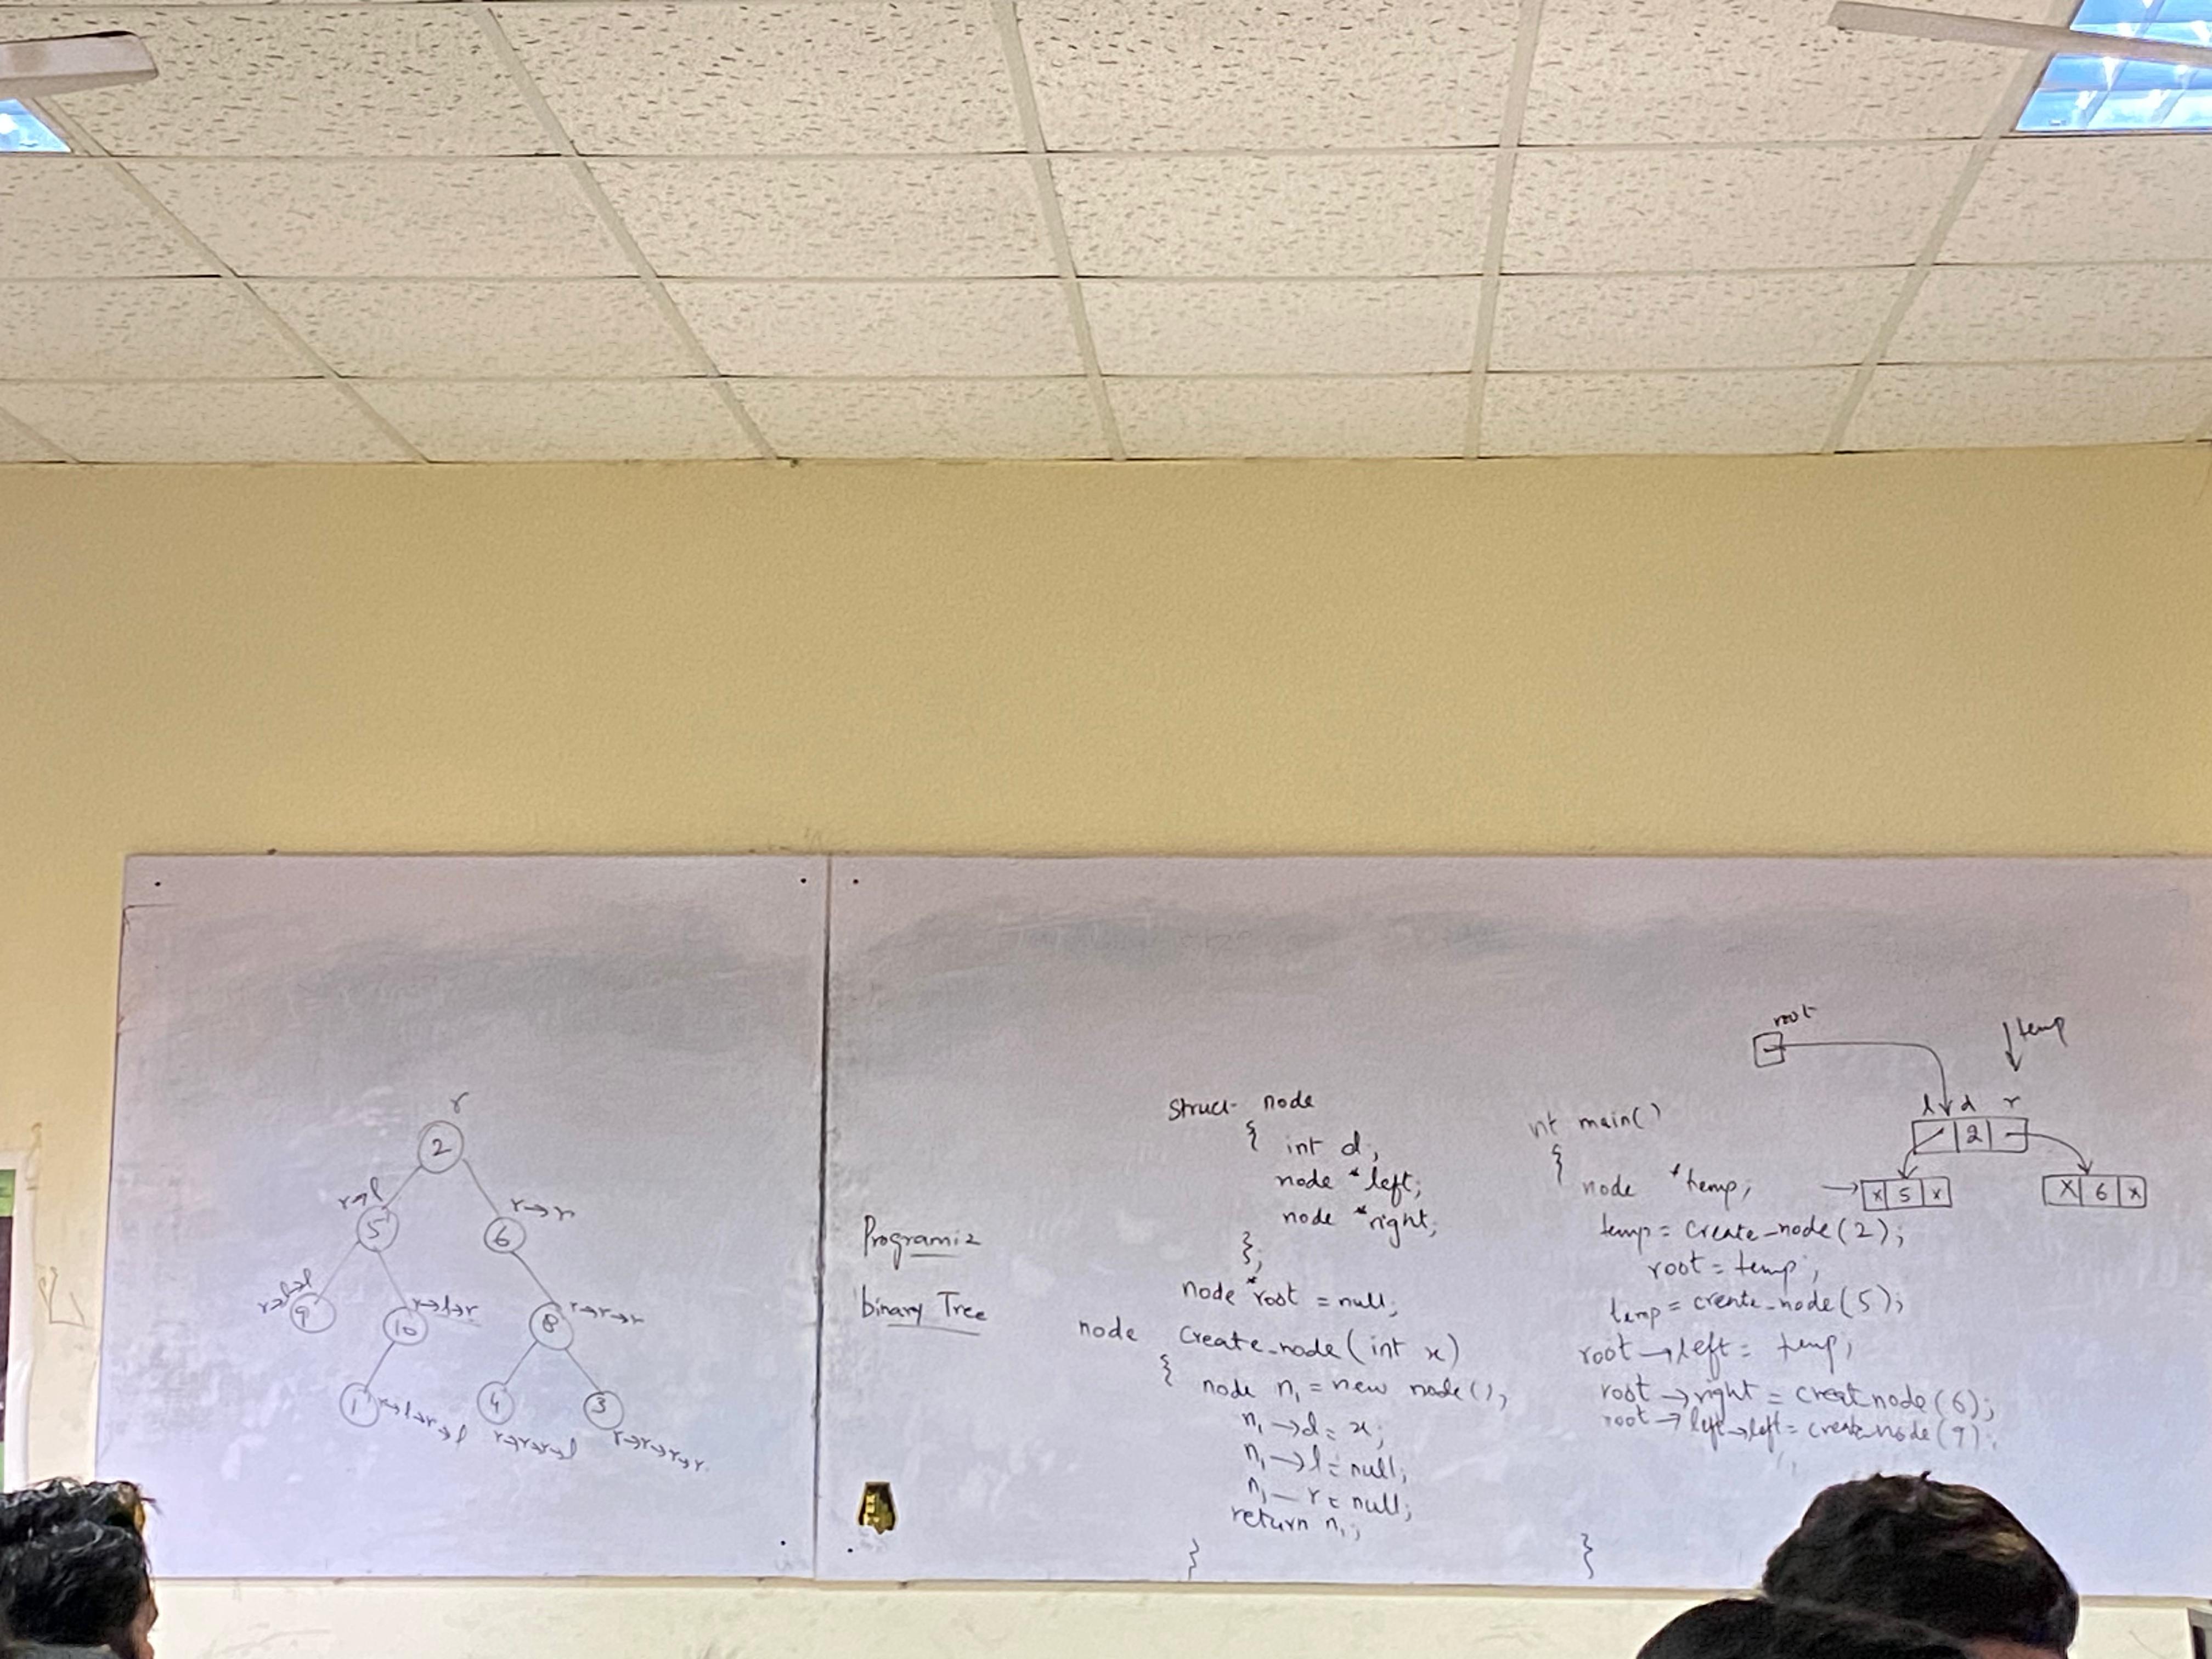 r
2
r→l
5
r→r
6
r→l→l
9
r→l→r
10
r→r→r
8
1
r→l→r→l
4
r→r→r→l
3
r→r→r→r
Programiz
binary Tree
struct node
{ int d;
node *left;
node *right;
};
node *root = null;
node create_node(int x)
{ node n₁ = new node();
n₁→d = x;
n₁→l = null;
n₁— r = null;
return n₁;
}
nt main()
{
node *temp;
temp = create_node(2);
root = temp;
temp = create_node(5);
root→left = temp;
root→right = creatnode(6);
root→left→left = createnode(9);
}
root
temp
l d r
2
x 5 x
x 6 x